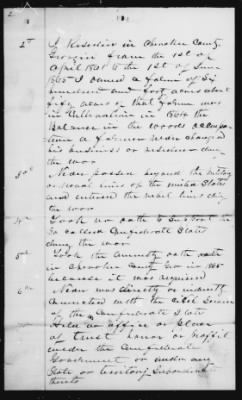 2
2nd I Resided in Cherokee County
Georgia from the 1st of
April 1861 to the 1st of June
1865 I owned a farm of Six
hundred and forty acres about
fifty acres of that farm was
in Cultivation in 1864 the
Balance in the woods occupa-
tion a farmer never changed
his business or residence during
the war
3rd Never passed beyond the military
or naval lines of the united States
and entered the rebel lines during
the war
4th Took no oath to Support the
So called Confederate States
during the war
5th Took the amnesty oath
in Cherokee County Geo in 1865
because it was required
6th Never was directly or indirectly
Connected with the Civil Service
of the Confederate State
Held no office or place
of trust honor or profit
under the Confederate
Government or under any
State or territory
thereto